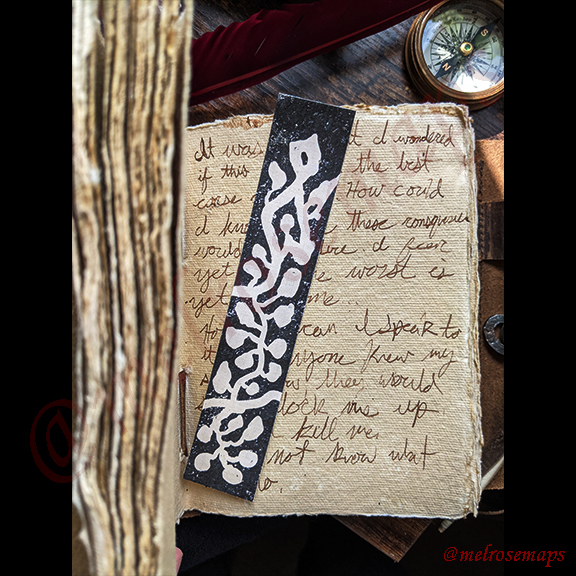 It was t I wondered
if this the best
How could
I kn these consequen
would ere. I fear
yet e worst is
yet me...
Ho can I speak to
it nyone knew my
s w they would
lock me up
kill me.
not know what
o.
@melrosemaps